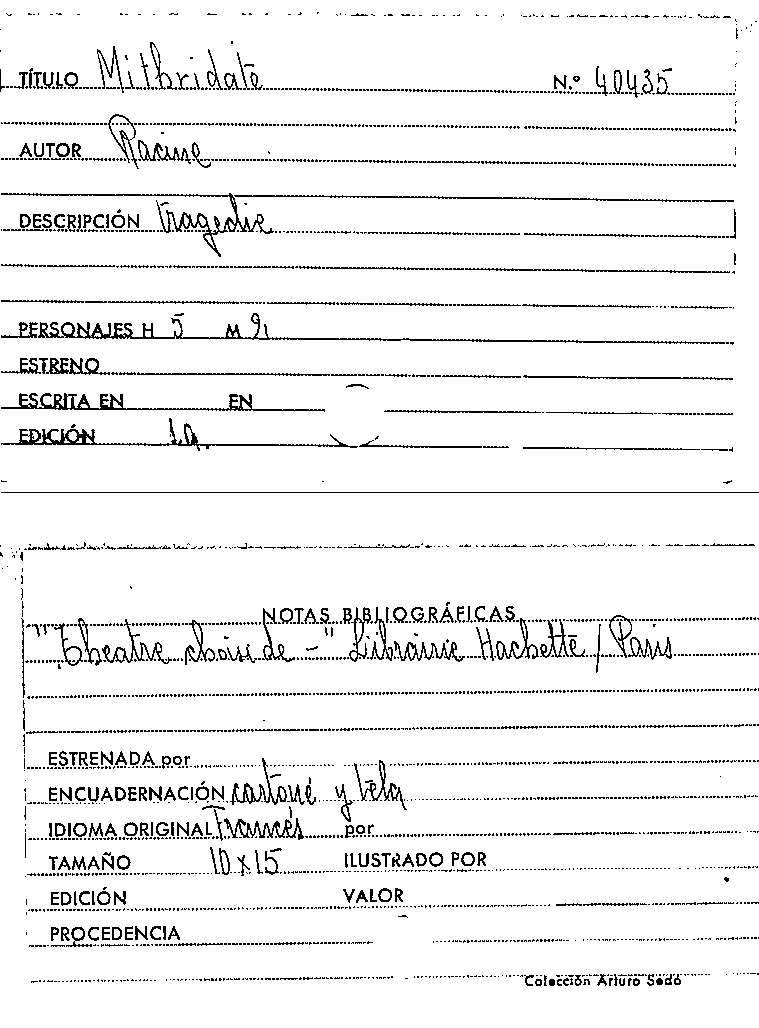 TÍTULO Mithridate N.º 40435
AUTOR Racine
DESCRIPCIÓN tragedie
PERSONAJES H 5 M 2
ESTRENO
ESCRITA EN EN
EDICIÓN 1a.
NOTAS BIBLIOGRÁFICAS
"Theatre choisi de -" Librairie Hachette / Paris
ESTRENADA por
ENCUADERNACIÓN cartoné y tela
IDIOMA ORIGINAL Francés por
TAMAÑO 10 x 15 ILUSTRADO POR
EDICIÓN VALOR
PROCEDENCIA
Colección Arturo Sedó